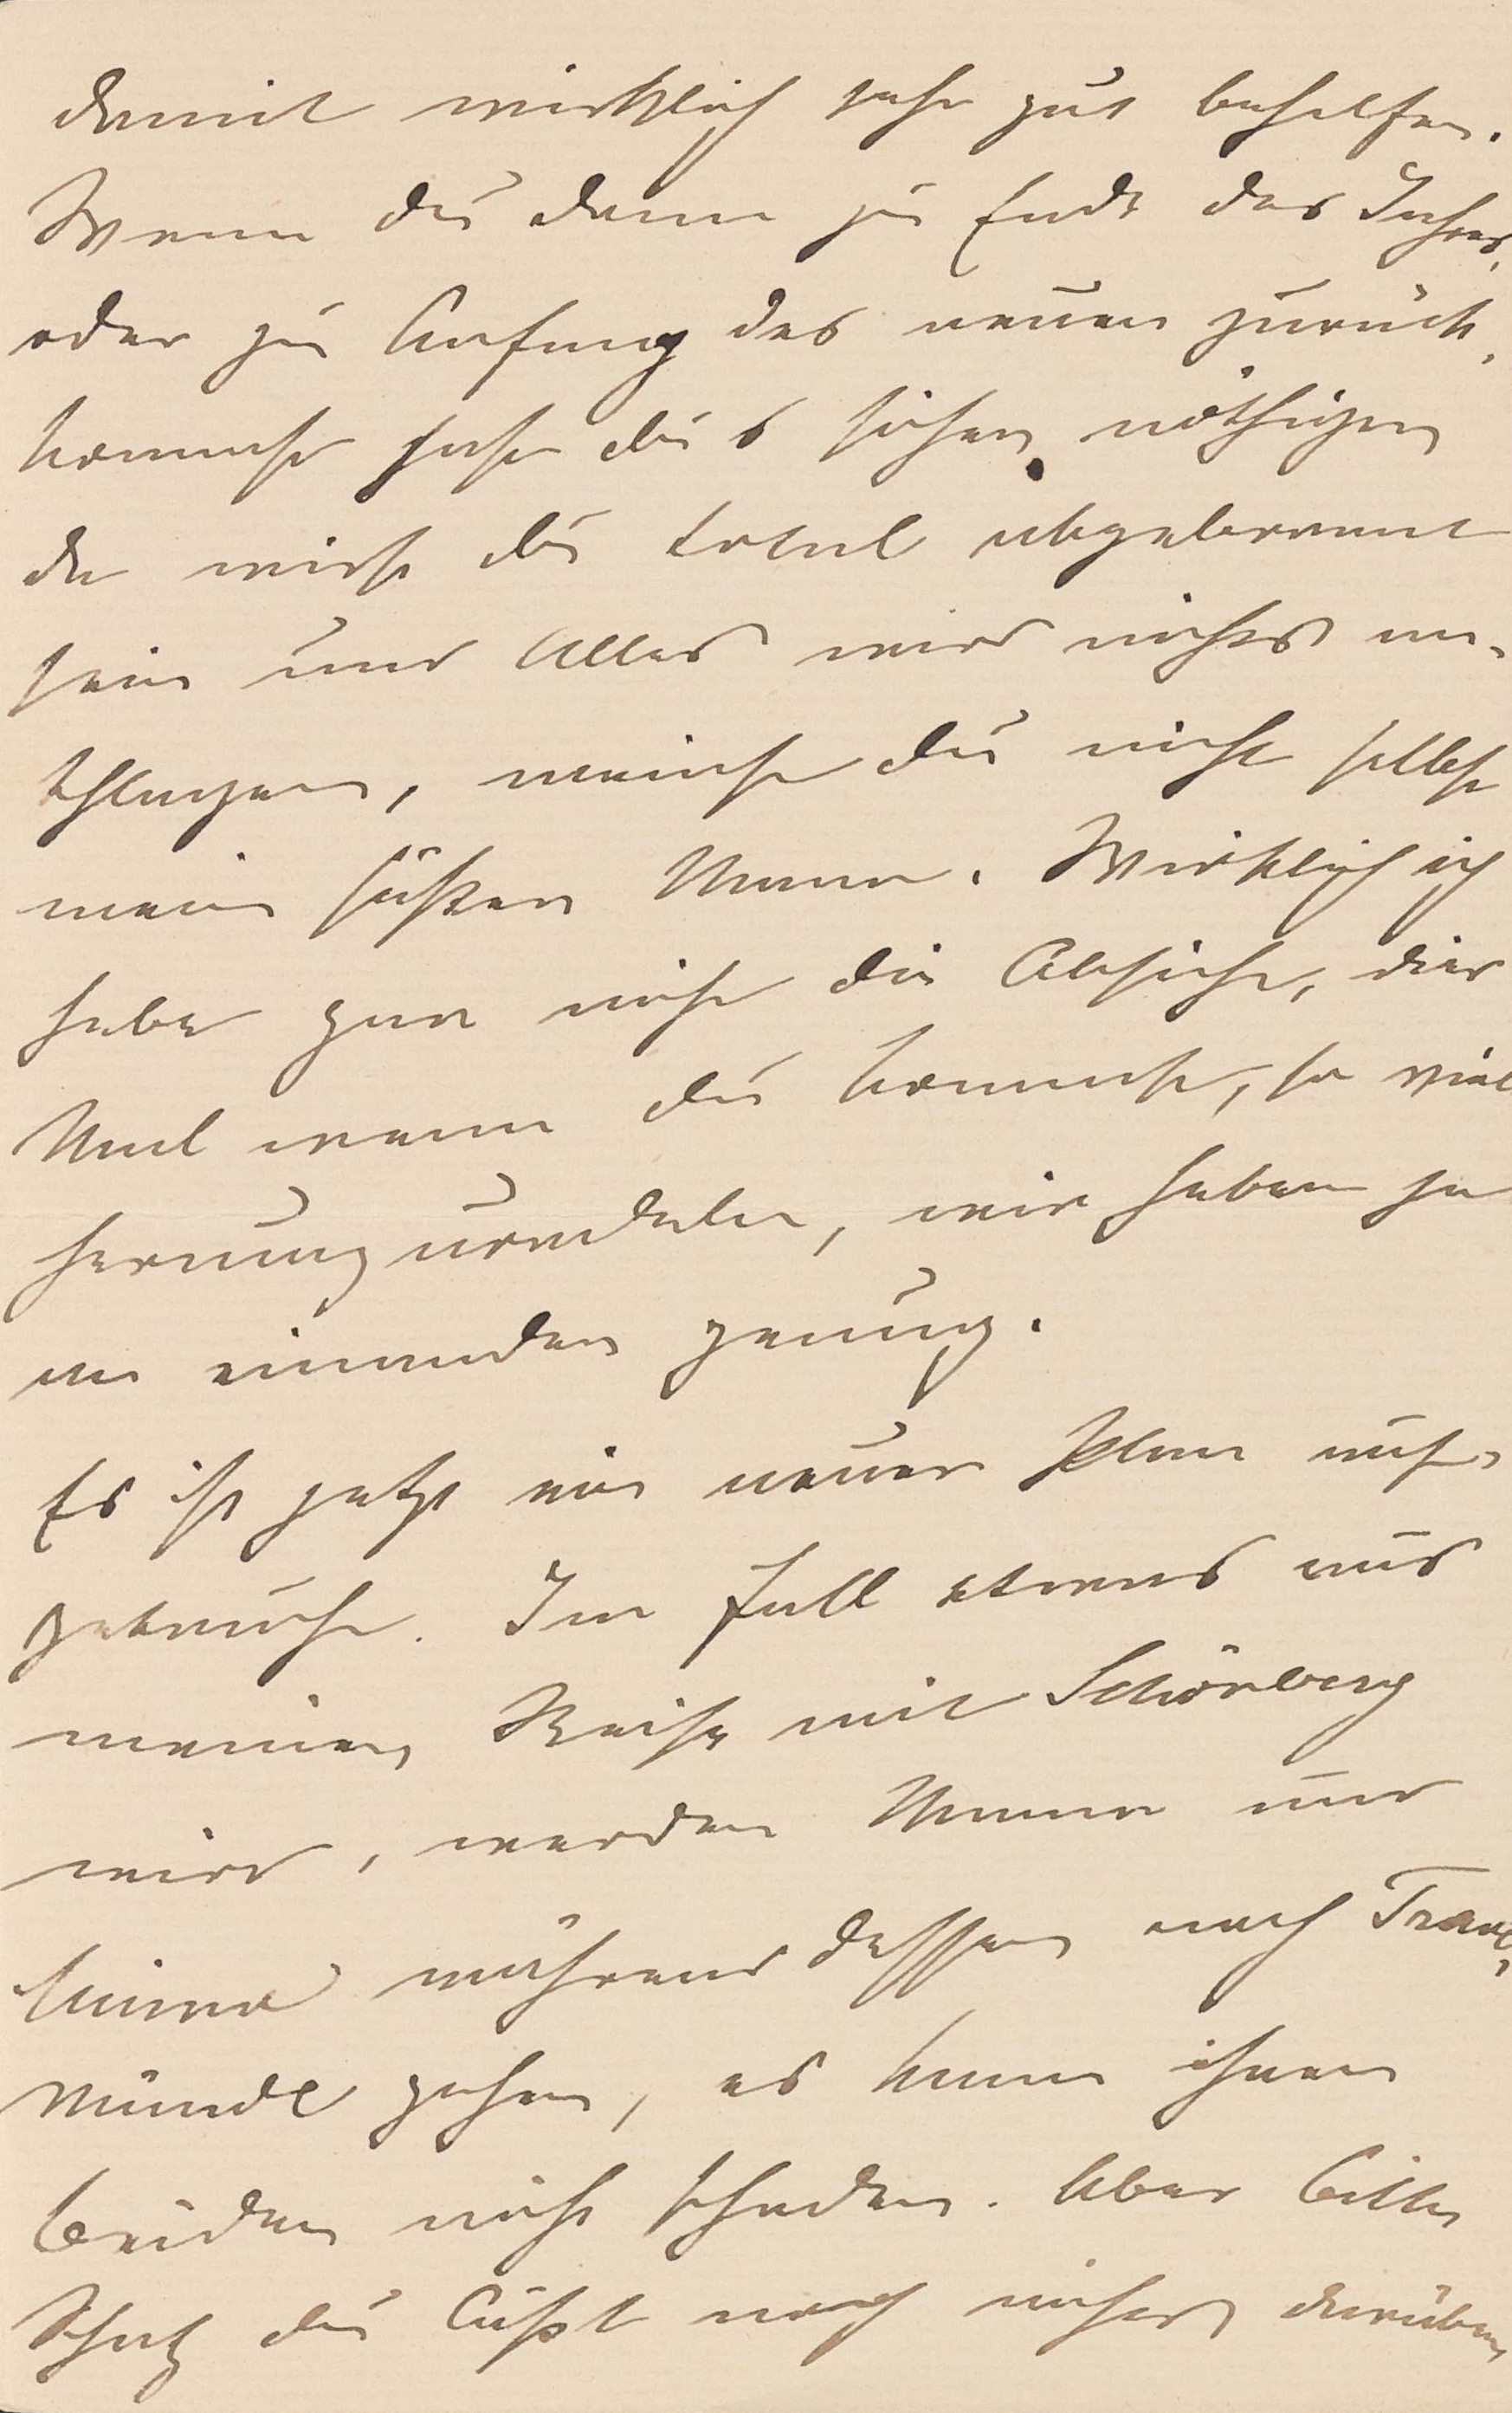 damit wirklich sehr gut behelfen.
Wenn du dann zu Ende des Jahres,
oder zu Anfang des neuen zurück,
kommst hast du 's sicher nöthiger
da wirst du total abgebrannt
sein und Alles wird nichts an-
schlagen, meinst du nicht selbst
mein süßer Mann. Wirklich ich
habe gar nicht die Absicht, dies
Mal wenn du kommst, so viel
herumzutrudeln, wir haben ja
an einander genug.
Es ist jetzt ein neuer Plan auf-
getaucht. Im Fall etwas aus
meiner Reise mit Schönberg
wird, werden Mama und
während dessen nach Trave,
münde gehen, es kann ihnen
beiden nicht schaden. Aber bitte
Schatz du läßt noch nichts darüber